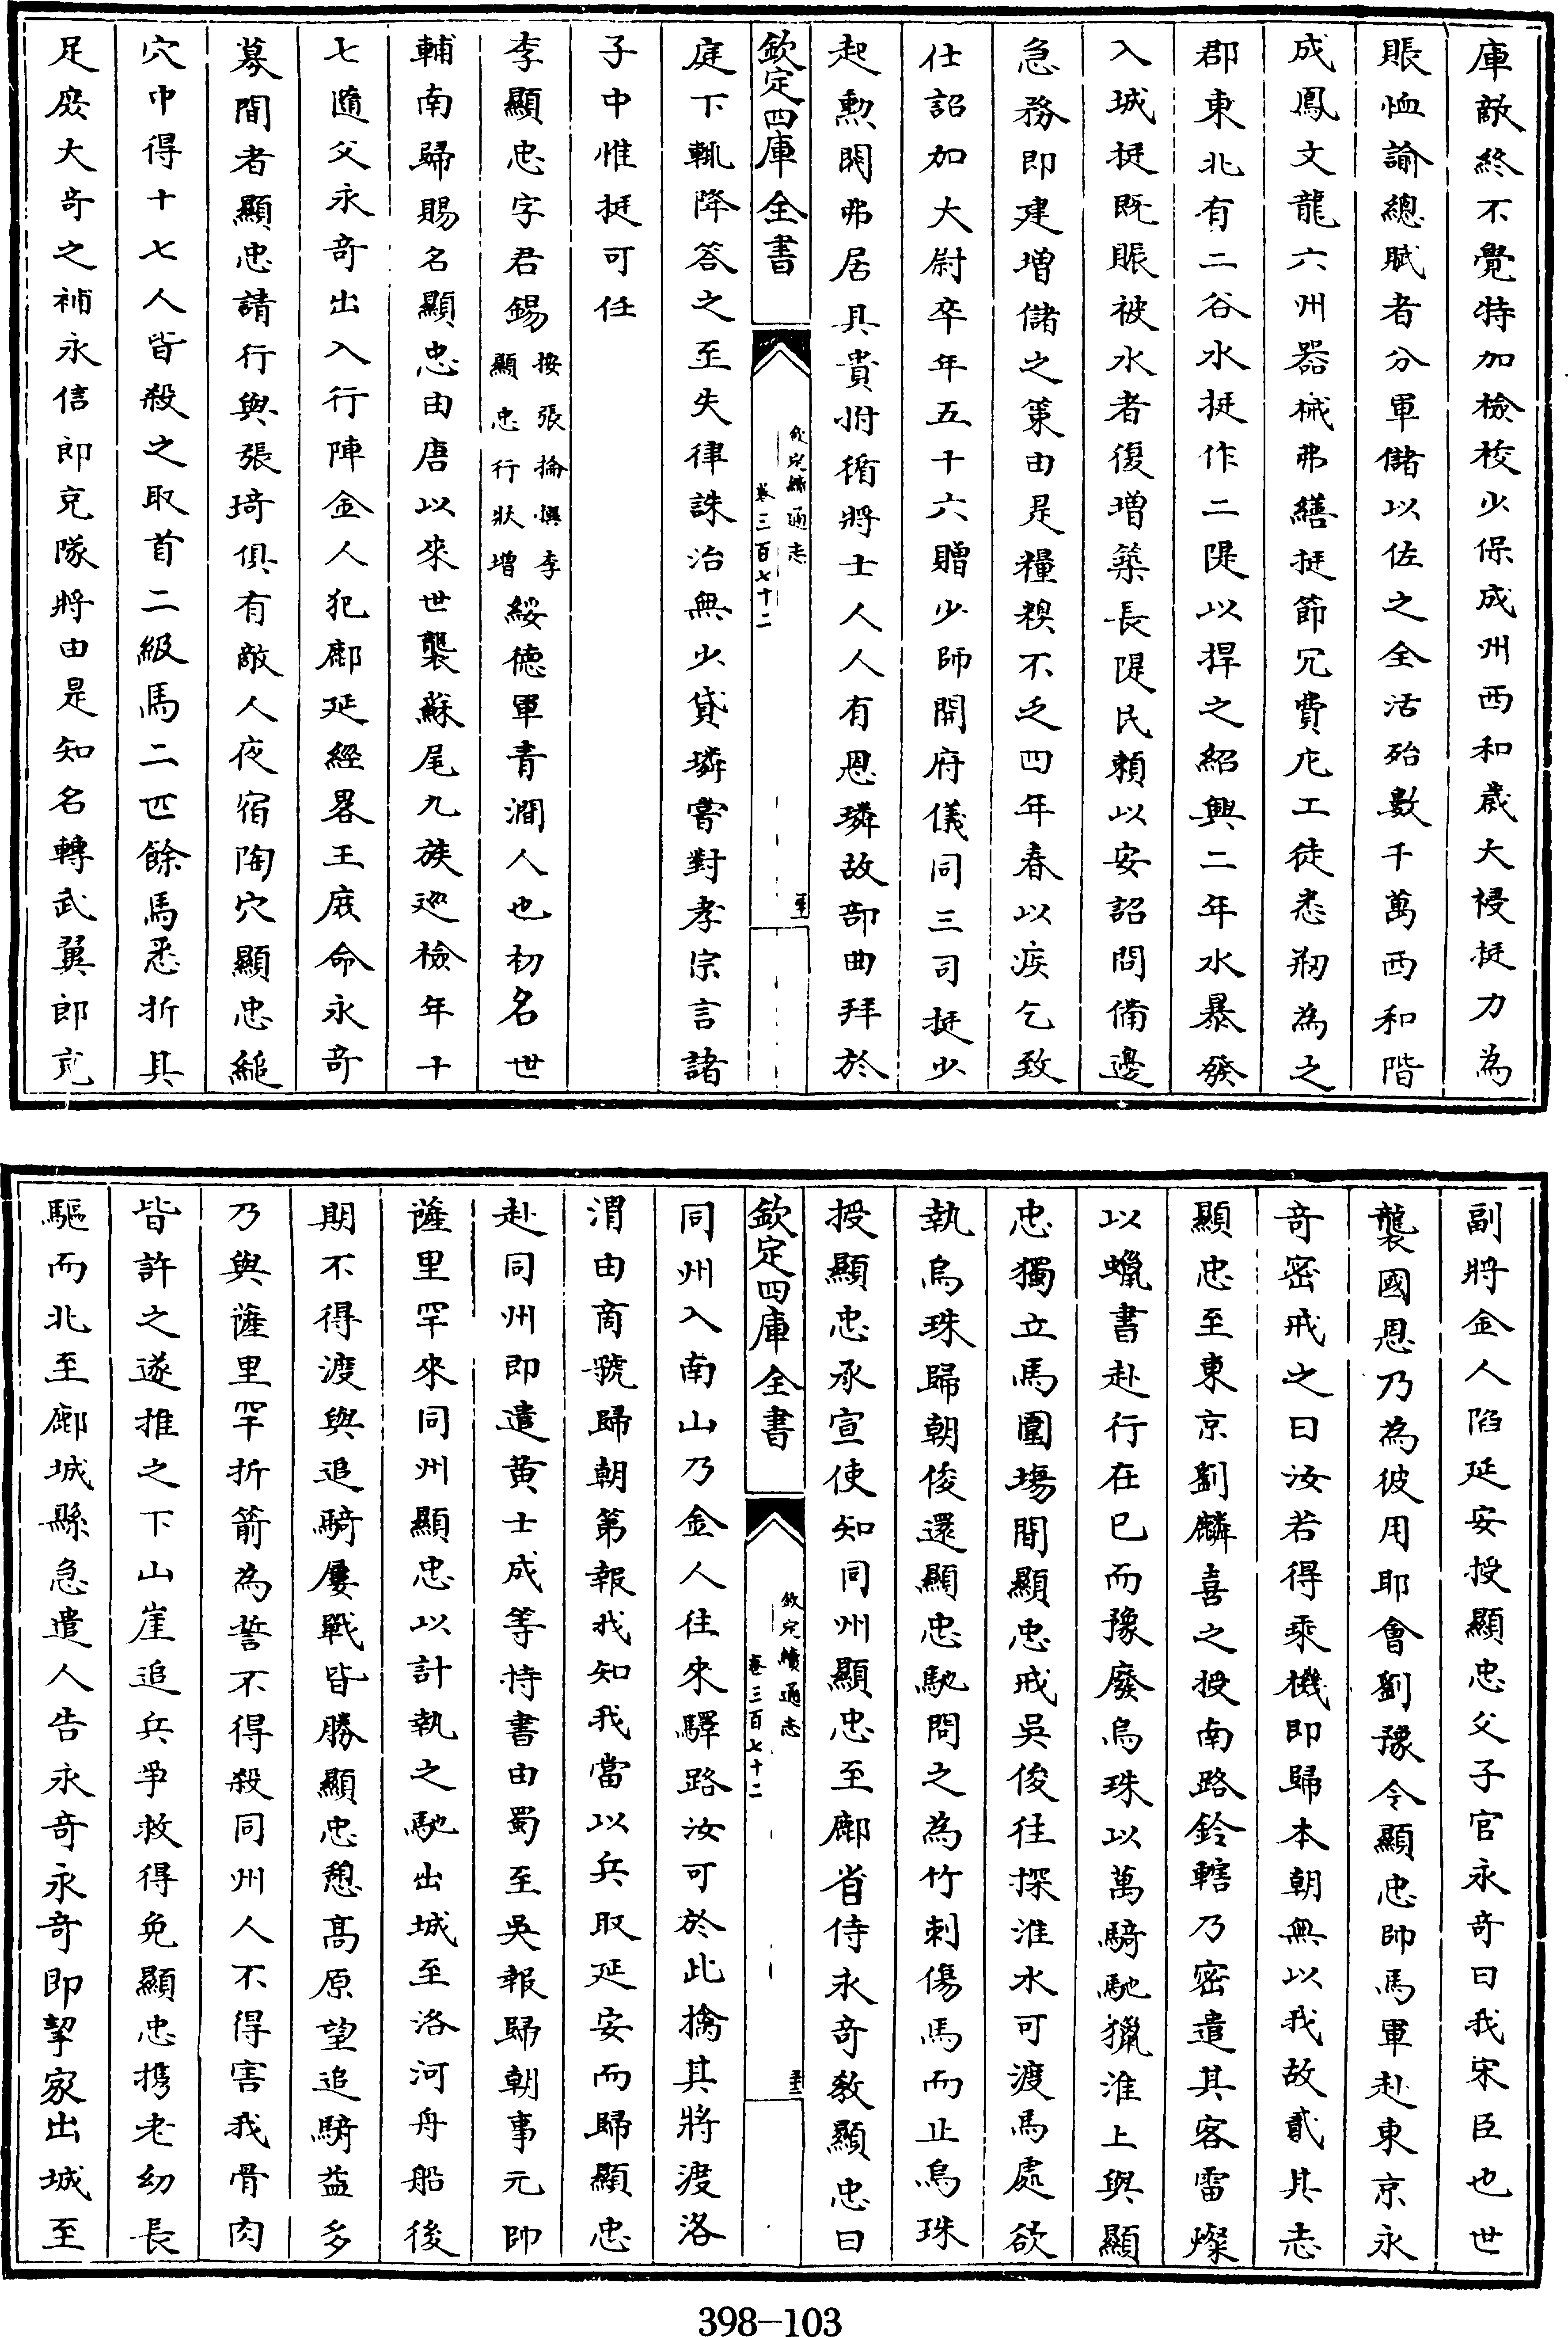 庫敵終不覺特加檢校少保成州西和歲大祲挺力為
賑恤諭總賦者分軍儲以佐之全活殆數千萬西和階
成鳳文龍六州器械弗繕挺節冗費庀工徒悉剏為之
郡東北有二谷水挺作二隄以捍之紹興二年水暴發
入城挺既賑被水者復增築長隄民頼以安詔問備邊
急務即建增儲之策由是糧糗不乏四年春以疾乞致
仕詔加大尉卒年五十六贈少師開府儀同三司挺少
起勲閥弗居其貴拊循將士人人有恩璘故部曲拜於
欽定四庫全書
欽定續通志
卷三百七十二
庭下輒降答之至失律誅治無少貸璘嘗對孝宗言諸
子中惟挺可任
李顯忠字君錫按張掄撰李顯忠行狀增綏德軍青澗人也初名世
輔南歸賜名顯忠由唐以來世襲蘇尾九族廵檢年十
七隨父永竒出入行陣金人犯鄜延經畧王庶命永竒
募間者顯忠請行與張琦俱有敵人夜宿陶穴顯忠縋
穴中得十七人皆殺之取首二級馬二匹餘馬悉折其
足庶大竒之補永信郎充隊將由是知名轉武翼郎充
副將金人陷延安授顯忠父子官永竒曰我宋臣也世
襲國恩乃為彼用耶會劉豫令顯忠帥馬軍赴東京永
竒密戒之曰汝若得乘機即歸本朝無以我故貳其志
顯忠至東京劉麟喜之授南路鈐轄乃密遣其客雷燦
以蠟書赴行在已而豫廢烏珠以萬騎馳獵淮上與顯
忠獨立馬圍塲間顯忠戒吳俊往探淮水可渡馬處欲
執烏珠歸朝俊還顯忠馳問之為竹刺傷馬而止烏珠
授顯忠承宣使知同州顯忠至鄜省侍永竒敎顯忠曰
欽定四庫全書
欽定續通志
卷三百七十二
同州入南山乃金人往來驛路汝可於此擒其將渡洛
渭由商虢歸朝第報我知我當以兵取延安而歸顯忠
赴同州即遣黄士成等持書由蜀至吳報歸朝事元帥
薩里罕來同州顯忠以計執之馳出城至洛河舟船後
期不得渡與追騎屢戰皆勝顯忠憩髙原望追騎益多
乃與薩里罕折箭為誓不得殺同州人不得害我骨肉
皆許之遂推之下山崖追兵爭救得免顯忠携老幼長
驅而北至鄜城縣急遣人告永竒永竒即挈家出城至
398-103